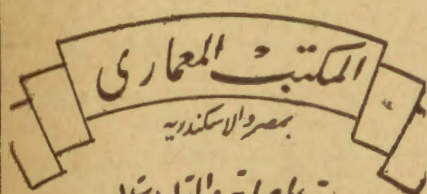 المكتب المعماري
بمصر والاسكندرية